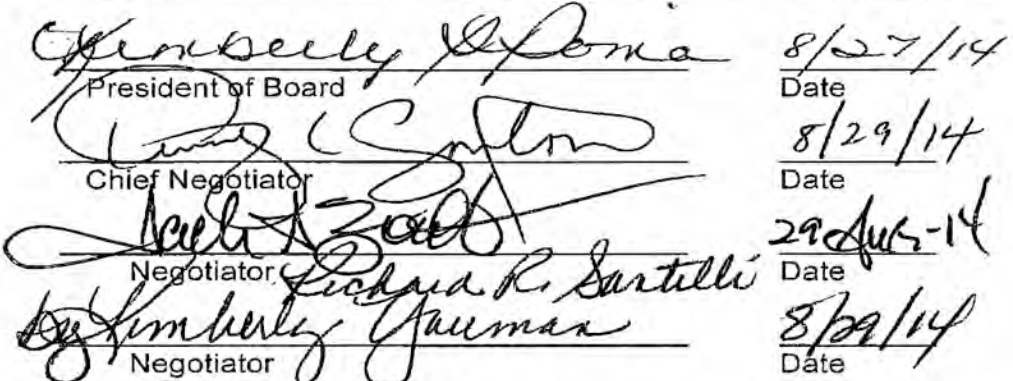 Kimberly 8/27/14
President of Board Date
8/29/14
Chief Negotiator Date
29 Aug-14
Negotiator Richard R. Santilli Date
by Kimberly Yauman 8/29/14
Negotiator Date